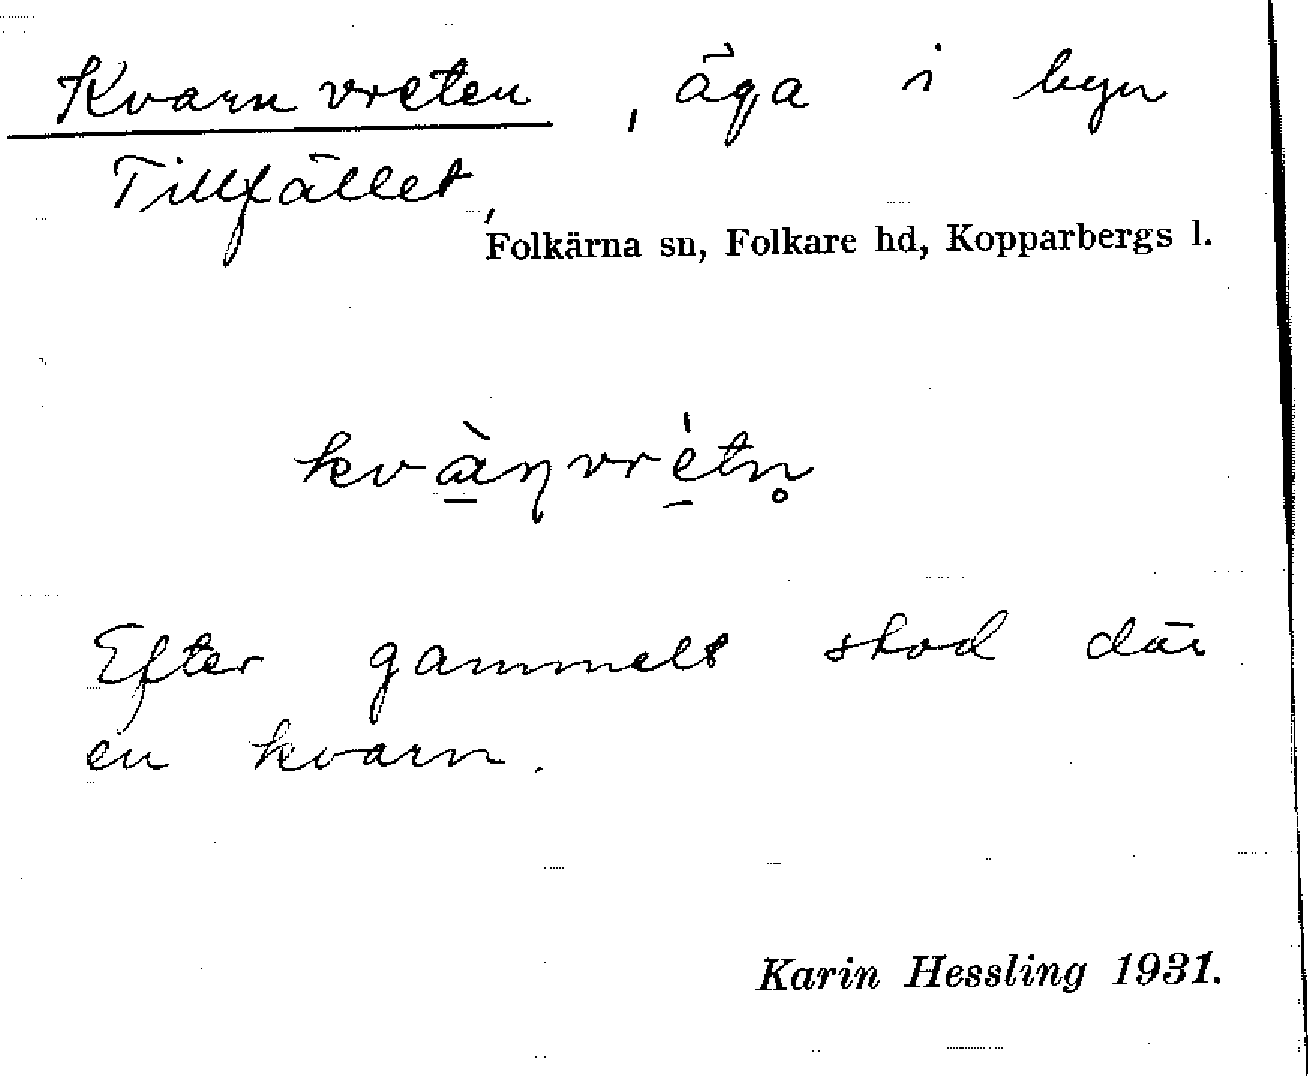 Kvarnvreten, äga i byn
Tillfället,
Folkärna sn, Folkare hd, Kopparbergs l.
kvὰ̠ɳvré̠tn̥
Efter gammelt stod där
en kvarn.
Karin Hessling 1931.